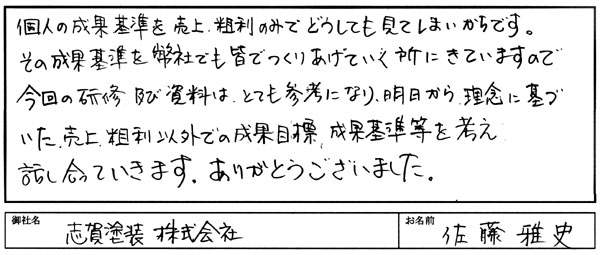 個人の成果基準を売上、粗利のみでどうしても見てしまいがちです。
その成果基準を弊社でも皆でつくりあげていく所にきていますので
今回の研修及び資料は、とても参考になり、明日から、理念に基づ
いた、売上、粗利以外での成果目標、成果基準等を考え
話し合っていきます。ありがとうございました。
御社名 志賀塗装 株式会社 お名前 佐藤 雅史